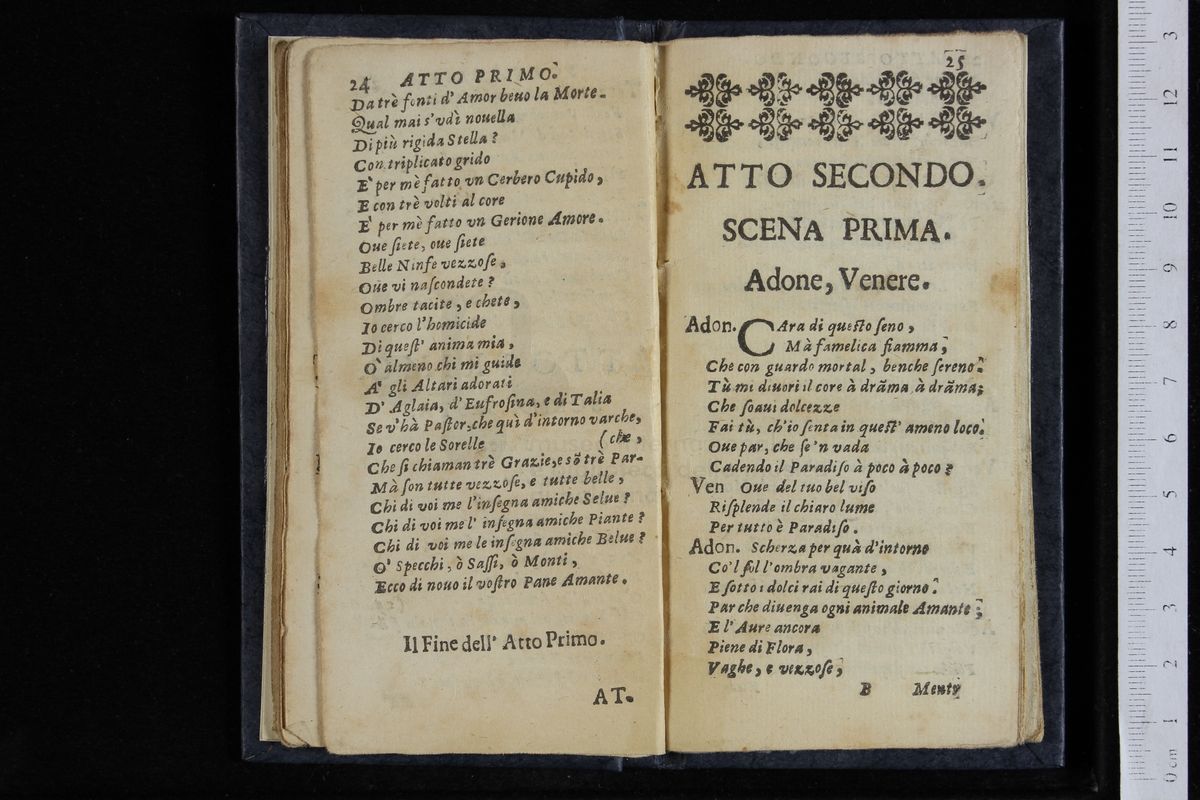 24 ATTO PRIMO.
Da trè fonti d' Amor beuo la Morte.
Qual mai s'vdì nouella
Di più rigida Stella?
Con triplicato grido
E' per mè fatto vn Cerbero Cupido,
E con trè volti al core
E' per mè fatto vn Gerione Amore.
Oue siete, oue siete
Belle Ninfe vezzose,
Oue vi nascondete?
Ombre tacite, e chete,
Io cerco l'homicide
Di quest' anima mia,
O' almeno chi mi guide
A' gli Altari adorati
D' Aglaia, d' Eufrosina, e di Talia
Se v'hà Pastor, che quì d'intorno varche,
Io cerco le Sorelle (che,
Che si chiaman trè Grazie, e sō trè Par-
Mà son tutte vezzose, e tutte belle,
Chi di voi me l'insegna amiche Selue?
Chi di voi me l' insegna amiche Piante?
Chi di voi me le insegna amiche Belue?
O' Specchi, ò Sassi, ò Monti,
Ecco di nouo il vostro Pane Amante.
Il Fine dell' Atto Primo.
AT.
25
ATTO SECONDO.
SCENA PRIMA.
Adone, Venere.
Adon. CAra di questo seno,
Mà famelica fiamma,
Che con guardo mortal, benche sereno.
Tù mi diuori il core à drāma à drāma;
Che soaui dolcezze
Fai tù, ch'io senta in quest' ameno loco.
Oue par, che se 'n vada
Cadendo il Paradiso à poco à poco?
Ven Oue del tuo bel viso
Risplende il chiaro lume
Per tutto è Paradiso.
Adon. Scherza per quà d'intorno
Co'l sol l'ombra vagante,
E sotto i dolci rai di questo giorno.
Par che diuenga ogni animale Amante;
E l' Aure ancora
Piene di Flora,
Vaghe, e vezzose,
B Mentr
0 cm 1 2 3 4 5 6 7 8 9 10 11 12 3